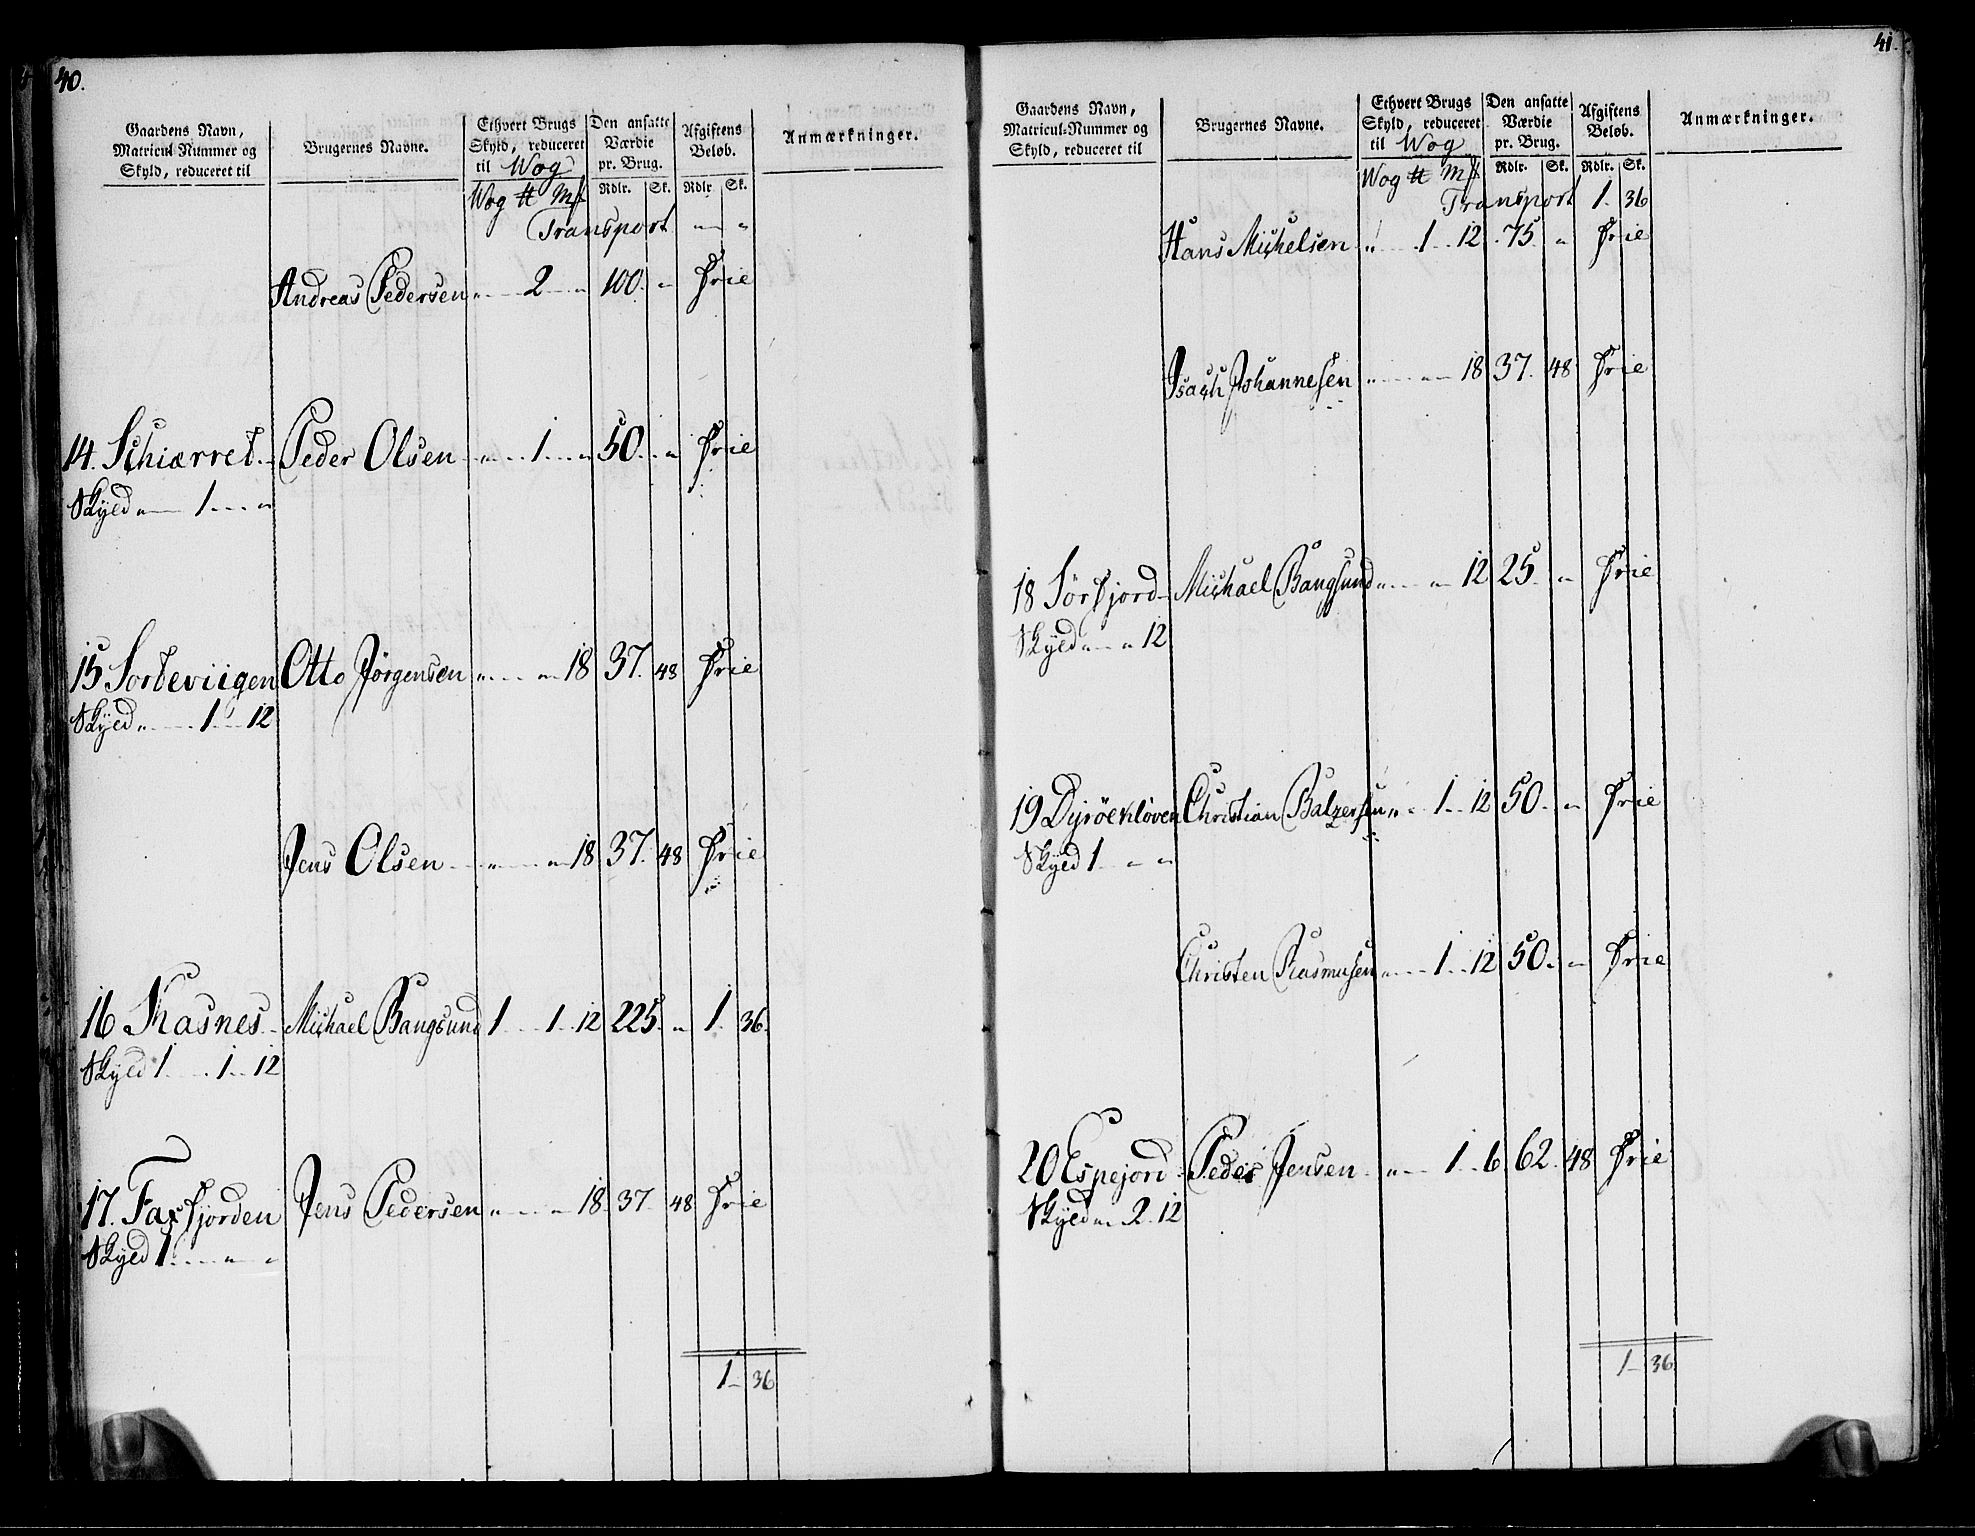 40.
Gaardens Navn, Matricul-Nummer og Skyld, reduceret til
Brugernes Navne.
Ethvert Brugs Skyld, reduceret til Wog
Den ansatte Værdie pr. Brug.
Afgiftens Beløb.
Anmærkninger.
Wog ℔ Mf Rdlr. Sk. Rdlr. Sk.
Transport " "
Andreas Pedersen " 2 " 100. " Frie
14. Schiærret. Peder Olsen " 1 " 50. " Frie
Skyld " 1 "
15 Sorteviigen Otto Jörgensen " " 18 37. 48 Frie
Skyld " 1 12
Jens Olsen " " 18 37. 48 Frie
16 Kasnes Michael Bangsund 1 1 12 225. " 1. 36.
Skyld 1 1 12
17. Faxfjorden Jens Pedersen " " 18. 37. 48 Frie
Skyld 1 " "
1 36
41.
Gaardens Navn, Matricul-Nummer og Skyld, reduceret til
Brugernes Navne.
Ethvert Brugs Skyld, reduceret til Wog
Den ansatte Værdie pr. Brug.
Afgiftens Beløb.
Anmærkninger.
Wog ℔ Mf Rdlr. Sk. Rdlr. Sk.
Transport 1. 36
Hans Michelsen " 1 12 75. " Frie
Isach Johannesen " " 18 37. 48 Frie
18 Sörfjord Michael Bangsund " " 12 25 " Frie
Skyld " " 12
19 Dyröekløven Christian Balzersen " 1 12 50. " Frie
Skyld 1 " "
Christen Rasmusen " 1 12 50. " Frie
20 Espejord Peder Jensen " 1 6 62. 48 Frie
Skyld " 2 12
1 36